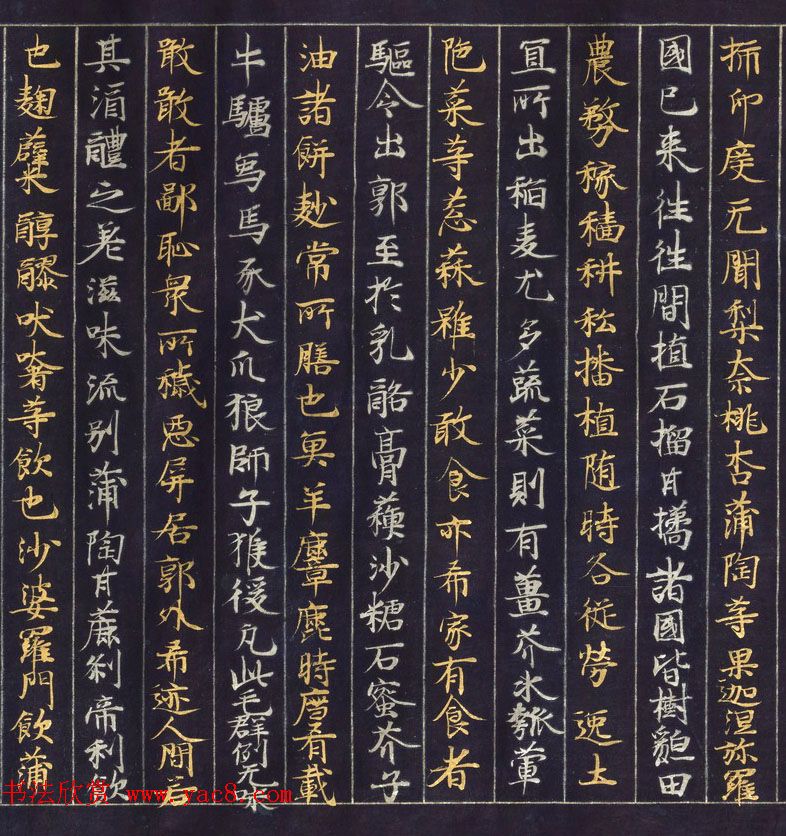 柿印度无聞梨柰桃杏蒲陶等果迦湿弥羅
國已来往往間植石榴甘橘諸國皆樹墾田
農務稼穡耕耘播植随時各従勞逸土
冝所出稲麦尤多蔬菜則有薑芥瓜瓠葷
陁菜等葱蒜雖少敢食亦希家有食者
驅令出郭至於乳酪膏蘓沙糖石蜜芥子
油諸餅麨常所膳也魚羊麞鹿時薦肴載
牛驢馬豕犬狼師子猴猨凡此毛群例无
敢敢者鄙恥衆所穢惡屏居郭外希迹人間若
其酒醴之差滋味流别蒲陶甘蔗刹帝利飲
也麹蘖醇醪吠奢等飲也沙婆羅門飲蒲
书法欣赏 www.yac8.com